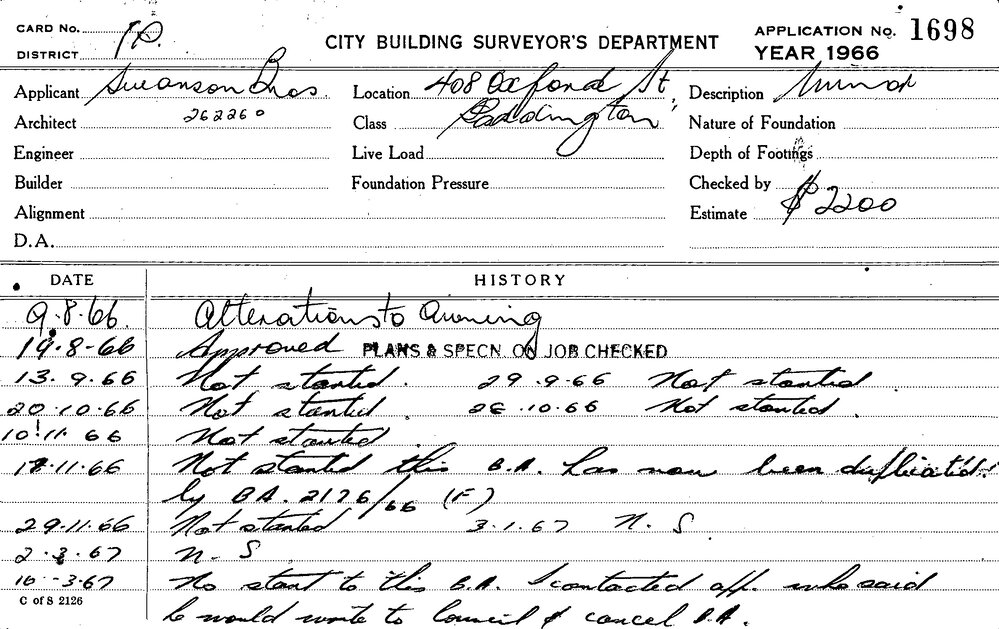 CARD No. TP.
DISTRICT
CITY BUILDING SURVEYOR'S DEPARTMENT
APPLICATION No. 1698
YEAR 1966
Applicant Swanson Bros.
Location 408 Oxford St,
Description Minor
Architect 262260
Class Paddington
Nature of Foundation
Engineer
Live Load
Depth of Footings
Builder
Foundation Pressure
Checked by
Alignment
Estimate $2200
D.A.
DATE HISTORY
9.8.66. Alterations to Awning
19.8-66 Approved PLANS & SPECN. ON JOB CHECKED
13.9.66 Not started. 29.9.66 Not started.
20.10.66 Not started. 28.10.66 Not started.
10.11.66 Not started
18.11.66 Not started this B.A. has now been duplicated
by BA. 2176/66 (F)
29.11.66 Not started 3.1.67 N.S
2.3.67 N.S
16-3.67 No start to this B.A. I contacted app. who said
he would write to Council & cancel B.A.
C of S 2126